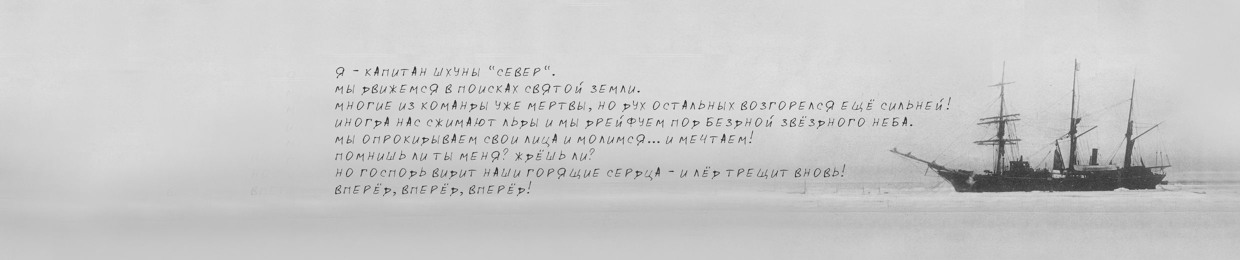 Я - КАПИТАН ШХУНЫ "СЕВЕР".
МЫ ДВИЖЕМСЯ В ПОИСКАХ СВЯТОЙ ЗЕМЛИ.
МНОГИЕ ИЗ КОМАНДЫ УЖЕ МЕРТВЫ, НО ДУХ ОСТАЛЬНЫХ ВОЗГОРЕЛСЯ ЕЩЁ СИЛЬНЕЙ!
ИНОГДА НАС СЖИМАЮТ ЛЬДЫ И МЫ ДРЕЙФУЕМ ПОД БЕЗДНОЙ ЗВЁЗДНОГО НЕБА.
МЫ ОПРОКИДЫВАЕМ СВОИ ЛИЦА И МОЛИМСЯ... И МЕЧТАЕМ!
ПОМНИШЬ ЛИ ТЫ МЕНЯ? ЖДЁШЬ ЛИ?
НО ГОСПОДЬ ВИДИТ НАШИ ГОРЯЩИЕ СЕРДЦА - И ЛЁД ТРЕЩИТ ВНОВЬ!
ВПЕРЁД, ВПЕРЁД, ВПЕРЁД!